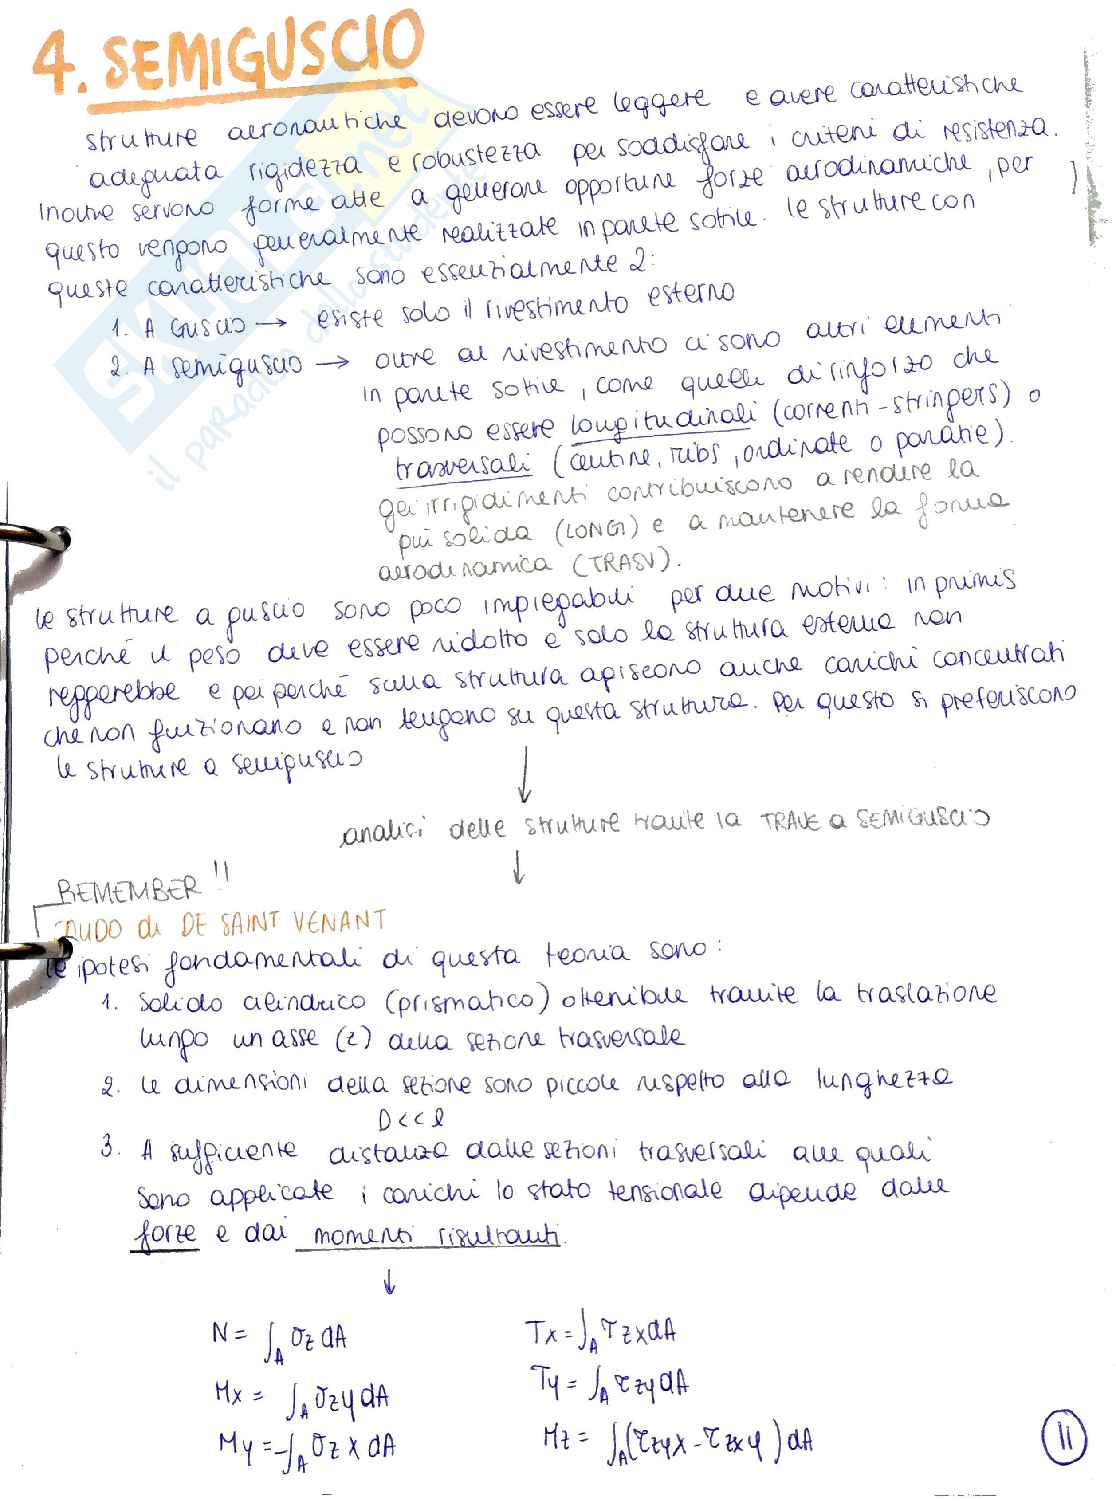 4. SEMIGUSCIO
strutture aeronautiche devono essere leggere e avere caratteristiche
adeguata rigidezza e robustezza per soddisfare i criteri di resistenza.
Inoltre servono forme atte a generare opportune forze aerodinamiche, per
questo vengono generalmente realizzate in parete sottile. le strutture con
queste caratteristiche sono essenzialmente 2:
1. A GUSCIO → esiste solo il rivestimento esterno
2. A semiguscio → oltre al rivestimento ci sono altri elementi
in parete sottile, come quelli di rinforzo che
possono essere longitudinali (correnti-stringers) o
trasversali (centine, ribs, ordinate o paratie).
gli irrigidimenti contribuiscono a rendere la
più solida (LONGI) e a mantenere la forma
aerodinamica (TRASV).
le strutture a guscio sono poco impiegabili per due motivi: in primis
perché il peso deve essere ridotto e solo la struttura esterna non
reggerebbe e poi perché sulla struttura agiscono anche carichi concentrati
che non funzionano e non tengono su questa struttura. Per questo si preferiscono
le strutture a semiguscio
↓
analisi delle strutture tramite la TRAVE a SEMIGUSCIO
↓
REMEMBER !!
di DE SAINT VENANT
le ipotesi fondamentali di questa teoria sono:
1. Solido cilindrico (prismatico) ottenibile tramite la traslazione
lungo un asse (z) della sezione trasversale
2. le dimensioni della sezione sono piccole rispetto alla lunghezza
D<<l
3. A sufficiente distanza dalle sezioni trasversali alle quali
sono applicate i carichi lo stato tensionale dipende dalle
forze e dai momenti risultanti.
↓
N = ∫A σz dA Tx = ∫A τzx dA
Mx = ∫A σz y dA Ty = ∫A τzy dA
My = -∫A σz x dA Mz = ∫A (τzy x - τzx y) dA
11
SKUOLA.net
il paradiso dello studente